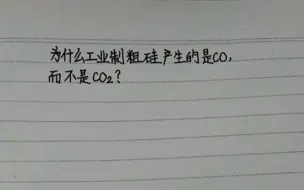 为什么工业制粗硅产生的是CO,
而不是CO₂?